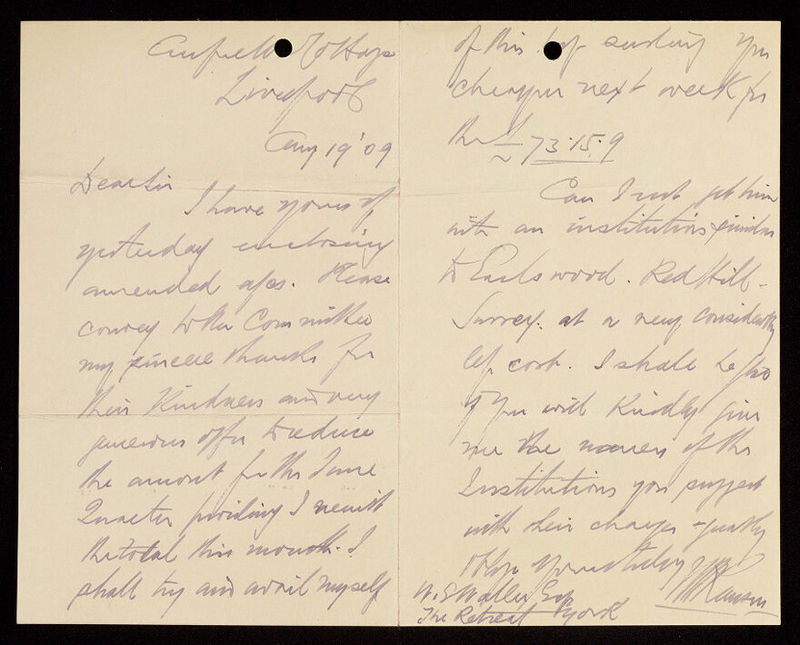 Anfield Cottage
Liverpool
Aug 19' 09
Dear Sir
I have yours of
yesterday enclosing
amended a/cs. Please
convey to the Committee
my sincere thanks for
their Kindness and very
generous offer to reduce
the amount for the June
Quarter providing I remit
the total this month. I
shall try and avail myself
of this by sending you
cheque next week for
the £73.15.9
Can I not get him
with an institution similar
to Earlswood. Red Hill -
Surrey. at a very considerably
less cost. I shall be glad
if you will Kindly give
me the names of the
Institutions you suggest
with their charges - greatly
oblige yours truly
W. S Waller Esq
The Retreat York